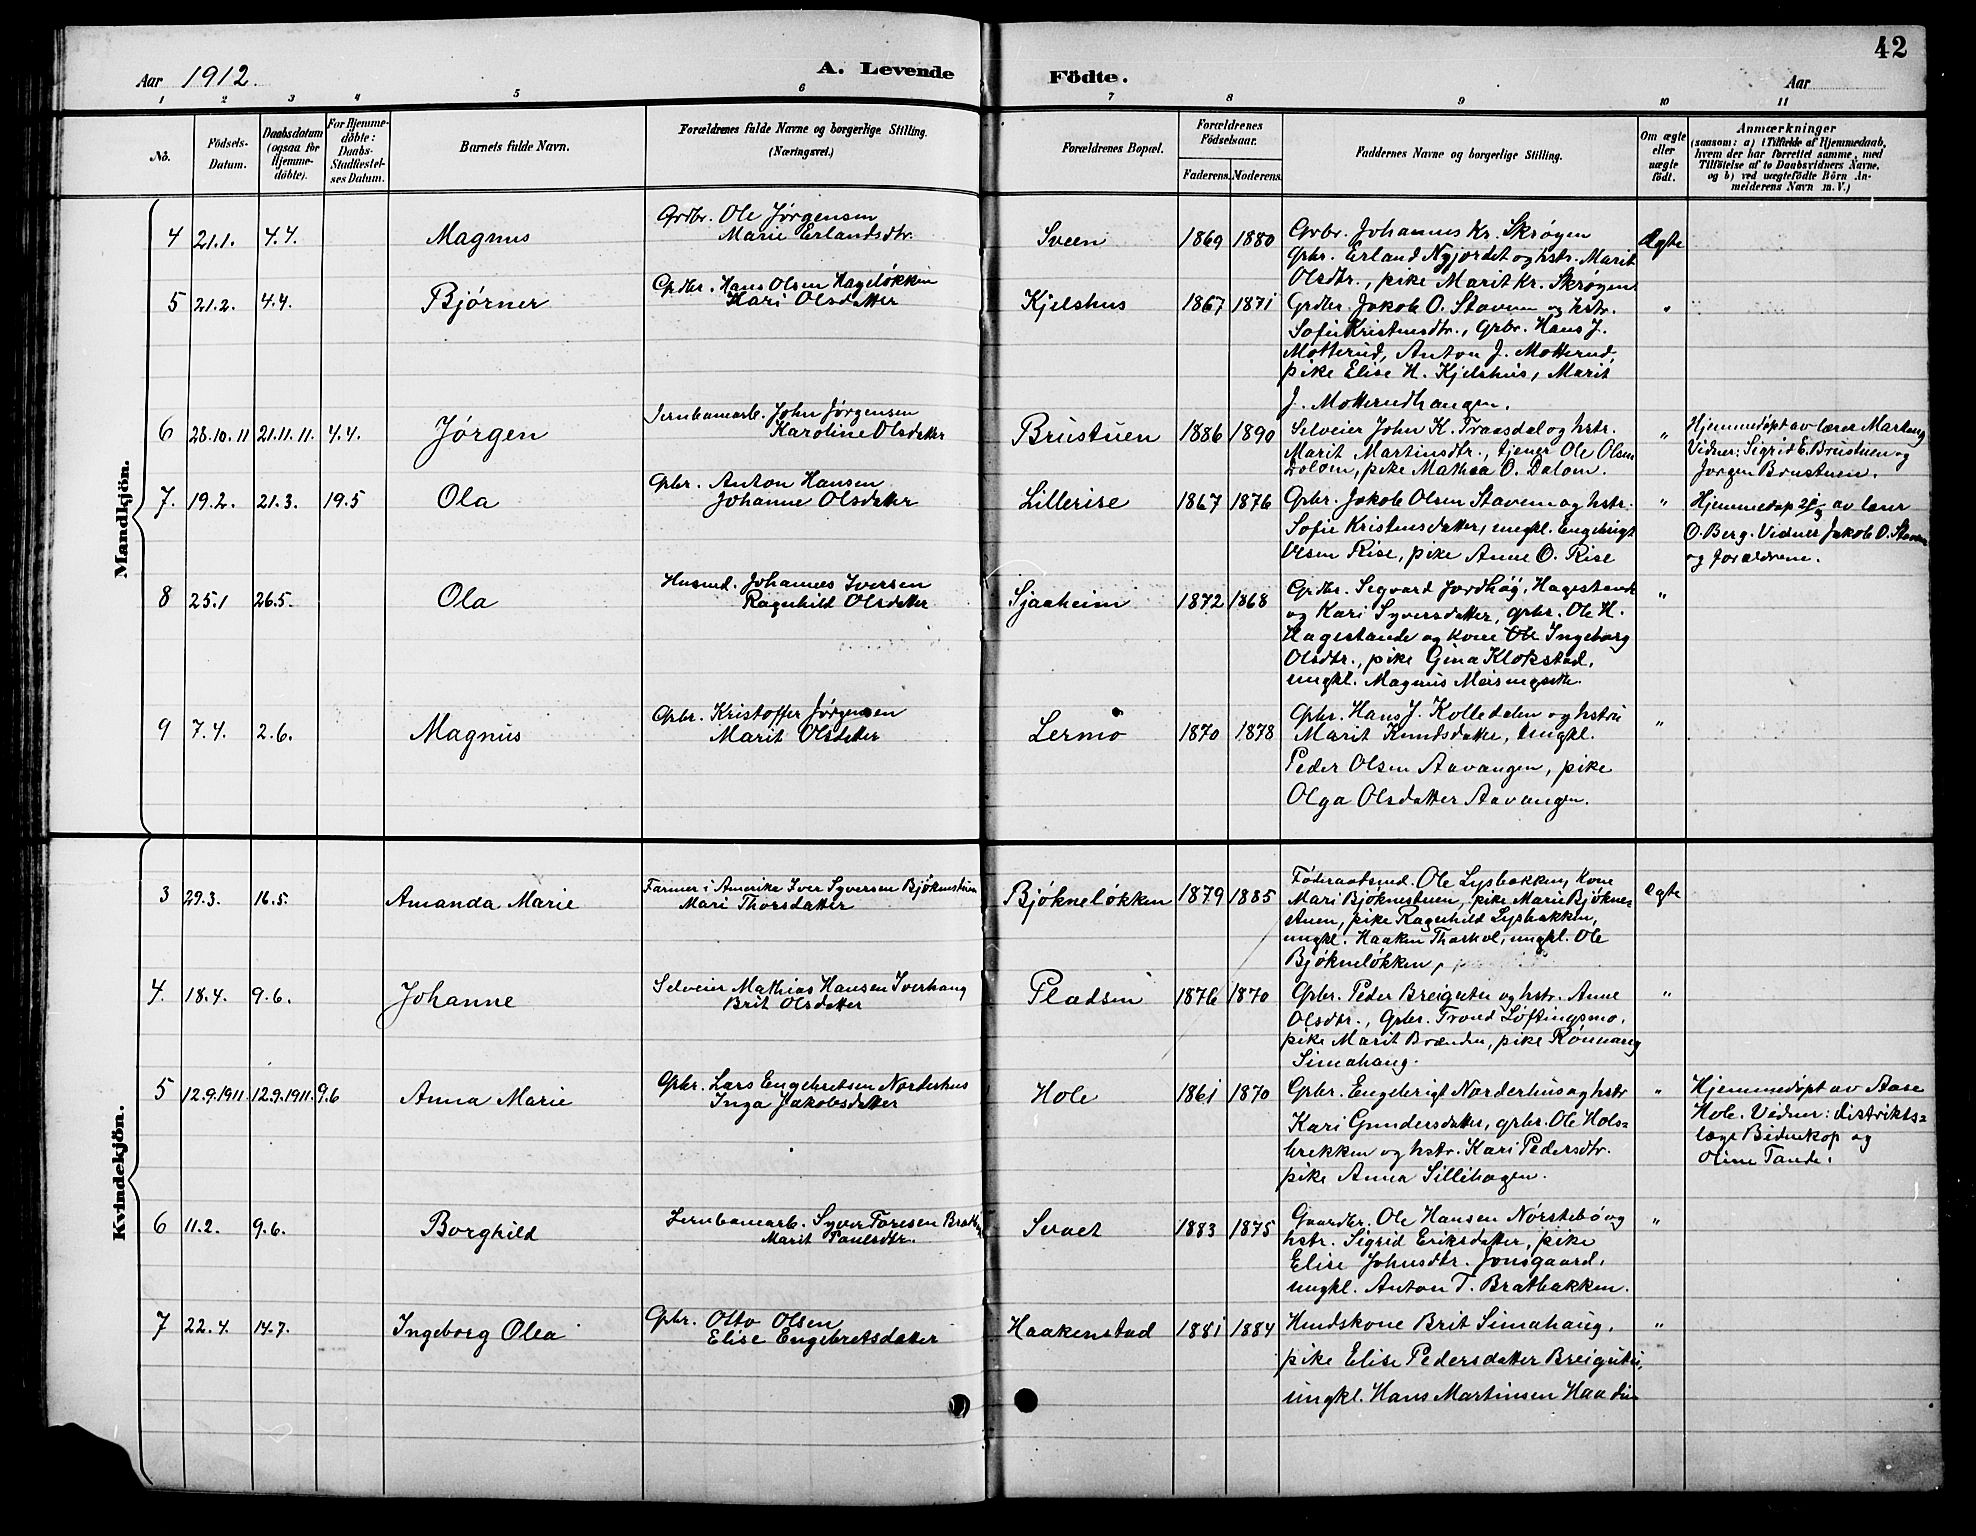 42
Aar 1912.
A. Levende Födte.
Aar
1 2 3 4 5 6 7 8 9 10 11
No.
Födsels-
Datum.
Daabsdatum
(ogsaa for
Hjemme-
döbte).
For Hjemme-
döbte:
Daabs-
Stadfæstel-
ses Datum.
Barnets fulde Navn.
Forældrenes fulde Navne og borgerlige Stilling.
(Næringsvei.)
Forældrenes Bopæl.
Forældrenes
Födselsaar.
Faderens. Moderens.
Faddernes Navne og borgerlige Stilling.
Om ægte
eller
uægte
födt.
Anmærkninger
(saasom: a) i Tilfælde af Hjemmedaab,
hvem der har forrettet samme, med
Tilföielse af to Daabsvidners Navne,
og b) ved uægtefödte Börn An-
melderens Navn m. V.)
Mandkjön.
4 21.1. 4.4. Magnus
Grdbr. Ole Jørgensen
Marie Erlandsdtr.
Sveen 1869 1880
Grbr. Johannes Kr. Skrøgen
Grbr. Erland Nyjordet og hstr. Marit
Olsdtr., pike Marit Kr. Skrøgen
Ægte
5 21.2. 4.4. Bjørner
Grdbr. Hans Olsen Hageløkken
Kari Olsdatter
Kjelshus 1867 1871
Grdbr. Jakob O. Stavem og hstr.
Sofie Kristensdtr., Grbr. Hans J.
Motterud, Anton J. Motterud,
pike Elise H. Kjelshus, Marit
J. Motterudhaugen.
"
6 28.10.11 21.11.11. 4.4. Jørgen
Jernbanearb. John Jørgensen
Karoline Olsdatter
Brustuen 1886 1890
Selveier John K. Traasdal og hstr.
Marit Martinsdtr., tjener Ole Olsen
Dalom, pike Mathea O. Dalom.
"
Hjemmedöpt av lærer
Vidner: Sigrid E. Brustuen og
Jørgen Brustuen.
7. 19.2. 21.3. 19.5 Ola
Grbr. Anton Hansen
Johanne Olsdatter
Lillerise 1867 1876
Grbr. Jakob Olsen Stavem og hstr.
Sofie Kristensdatter, ungkl. Engebrigt
Olsen Rise, pike Anne O. Rise
"
Hjemmedöp 21/3 av lærer
O. Berg. Vidner Jakob O. Stavem
og forældrene.
8 25.1 26.5. Ola
Husmd. Johannes Iversen
Ragnhild Olsdatter
Sjaaheim 1872 1868
Grdbr. Segvard Jordhøy, Hagestande
og Kari Syversdatter, grbr. Ole H.
Hagestande og kone Ole Ingeborg
Olsdtr., pike Gina Klokstad,
ungkl. Magnus
"
9 7.4. 2.6. Magnus
Grbr. Kristoffer Jørgensen
Marit Olsdatter
Lermo 1870 1878
Grbr. Hans J. Kolledalen og hstru
Marit Knutsdatter, Ungkl.
Peder Olsen Aavangen, pike
Olga Olsdatter Aavangen.
"
Kvindekjön.
3 29.3. 16.5. Amanda Marie
Farmer i Amerika Iver Syversen Bjøknestuen
Mari Thorsdatter
Bjøkneløkken 1879 1885
Føderaadsmd. Ole Lysbakken, Kone
Mari Bjøknestuen, pike Marie Bjøkne-
stuen, pike Ragnhild Lysbakken,
ungkl. Haaken, ungkl. Ole
Bjøkneløkken,
Ægte
4. 18.4. 9.6. Johanne
Selveier Mathias Hansen Iverhaug
Brit Olsdatter
Pladsen 1876 1870
Grbr. Peder Breigutu og hstr. Anne
Olsdtr., Grbr. Trond Løftingsmo,
pike Marit Brænden, pike Rønnaug
Simahaug.
"
5 12.9.1911. 12.9.1911. 9.6 Anna Marie
Grbr. Lars Engebretsen Norderhus
Inga Jakobsdatter
Hole 1861 1870
Grbr. Engebrigt Norderhus og hstr
Kari Gundersdatter, grbr. Ole Hols-
brekken og hstr. Kari Pedersdtr.
pike Anna Lillehagen.
"
Hjemmedöpt av Aase
Hole. Vidner: distrikts-
læge Bidenkap og
Oline Tande.
6 11.2. 9.6. Borghild
Jernbanearb. Syver Toresen
Marit Paulsdtr.
Svaet 1883 1875
Gaardbr. Ole Hansen Nørstebø og
hstr. Sigrid Eriksdatter, pike
Elise Johnsdtr. Jonsgaard,
ungkl. Anton T. Bratbakken.
"
7 22.4. 14.7. Ingeborg Olea
Grbr. Otto Olsen
Elise Engebretsdatter
Haakenstad 1881 1884
Husdskone Brit Simahaug,
pike Elise Pedersdatter Breigutu,
ungkl. Hans Martinsen
"